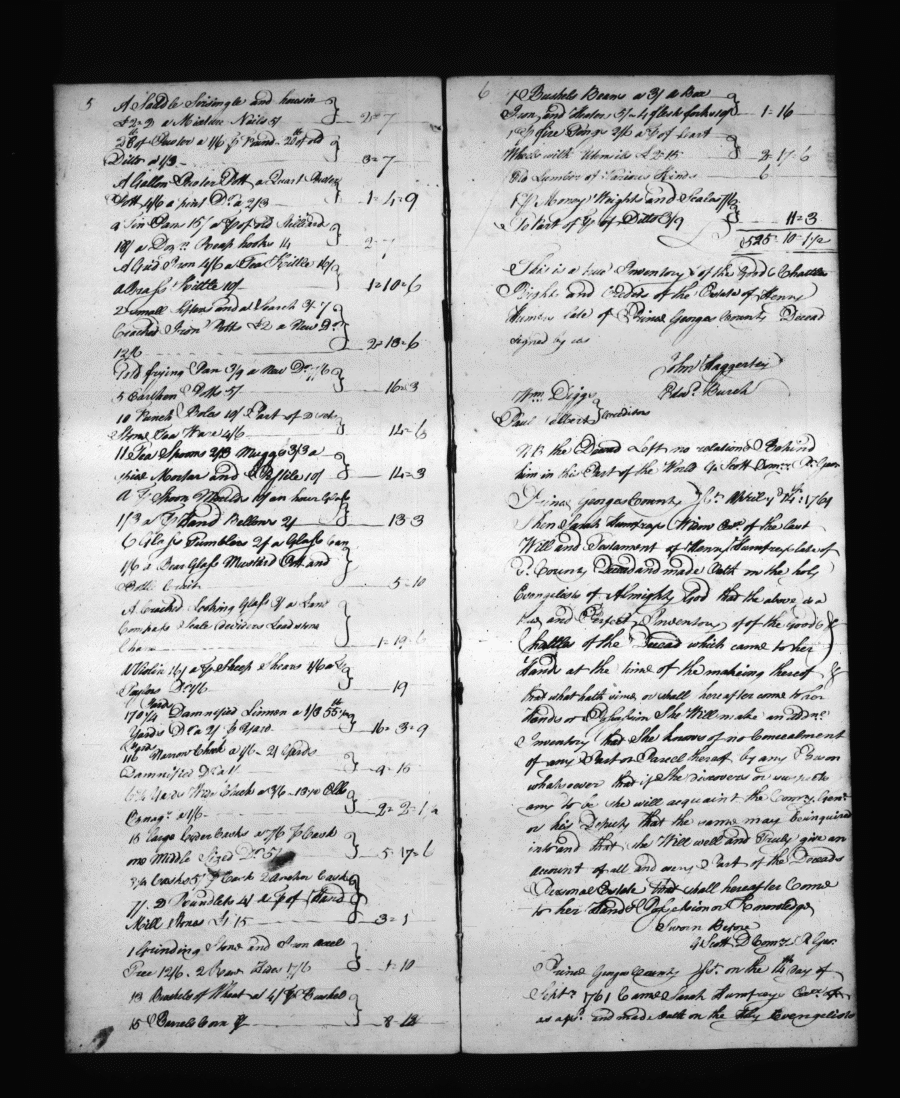 5
A Saddle Sirsingle and housin
£2=2 a Mill Nails 5/ 2=7
28 lb of Pewter a 1/6 p Pound 20 lb of old
Ditto a 1/3 3=7
A Gallon Pewter Pott a Quart Pewter
Pott 4/6 a pint Do. a 2/3 1=4=9
9 Tin Pans 15/ a p of old Stilliards
18/ a Dozn. Reap hooks 14 2=7
A Grid Iron 4/6 a Tea Kittle 16/
a Brass Kittle 10/ 1=10=6
2 small Sifters and a Search 3/ 7
Cracked Iron Potts £2 a New Do.
12/6 2=18=6
1 old frying Pan 3/9 a New Do. 7/6
5 Earthen Potts 5/ 16=3
10 Punch Boles 10/ Part of
Stone Tea Ware 4/6 14=6
11 Tea Spoons 2/3 Mugg 6 3/3 a
Mortar and Pestile 10/ 14=3
a p Spoon Moulds 10/ an hour Glass
1/3 a p Hand Bellows 2/ 13=3
6 Glass Tumblers 2/ a Glass Can
1/6 a Bear Glass Mustard Pott and
5=10
A Cracked Looking Glass 3/ a
Compass Scale Deviders Loadstone
Chain 1=19=6
A Violin 16/ a p Sheep Shears 1/6 a p
Taylors Do. 1/6 19
170¼ Yards Damnifed Linnen a 1/3 55
Yards Do. a 2/ p Yard 16=3=9
116 Yards Narrow Check a 1/6 21 Yards
Damnifed Do. a 1/ 9=15
Yards Wire Check a 3/6 Ells
Oznagr. a 1/6 2=2=1
15 large Cyder Casks a 7/6 p Cask
one Middle Sized Do. 5/ 5=17=6
Casks 5/ p Cask 2 Anchor Casks
7/. 2 Roundlets 4/ a p of Hand
Mill Stones £1 15 3=1
1 Grinding Stone and Iron axel
Tree 12/6. 2 Raw Hides 17/6 1=10
13 Bushels of Wheat at 4/ p Bushel
15 Barrels Corn 8=12
6
Bushels Beans a 3/ a Box
Iron and Heater 3/ 4 flesh forks 10/ 1=16
1 p fire Tongs 2/6 a p of Cart
Wheels with £2 15 2=17=6
To Lumber of Various Kinds 6
1 p Money Weights and Scales 7/6
To Part of p of Ditto 3/9 11=3
£525=10=1½
This is a true Inventory of the Goods Chattles
Rights and Credits of the Estate of Henry
Humfrey late of Prince Georges County Deceasd
signed by us
John Haggerty
Edwd. Burch
Wm. Digges
Paul Talbert } Creditors
NB the Deceasd Left no relations Behind
him in this Part of the World G Scott Comry.
Prince Georges County Sst. April ye 14th 1761
Then Sarah Humfreys Widow Exx. of the last
Will and Testament of Henry Humfreys late of
sd. County Deceasd and made Oath on the holy
Evangelists of Almighty God that the above is a
true and Perfect Inventory of of the Goods &
Chattles of the Deceasd which came to her
Hands at the time of the making thereof &
that what hath since or shall hereafter come to her
Hands or Possession She Will make an addnl.
Inventory that She knows of no Concealment
of any Part or Parcell thereof by any Person
whatsoever that if She discovers or suspects
any to be she will acquaint the Comry Genl.
or his Deputy that the same may be inquired
into and that she Will well and Truly give an
account of all and every Part of the Deceasds
Personal Estate that shall hereafter Come
to her Hand Possession or Knowledge
Sworn Before
G Scott D Comry. P Geos.
Prince Georges County Sst. on the 14th day of
Septr. 1761 Came Sarah Humfreys Exx. of
as afd. and made Oath on the Holy Evangelists